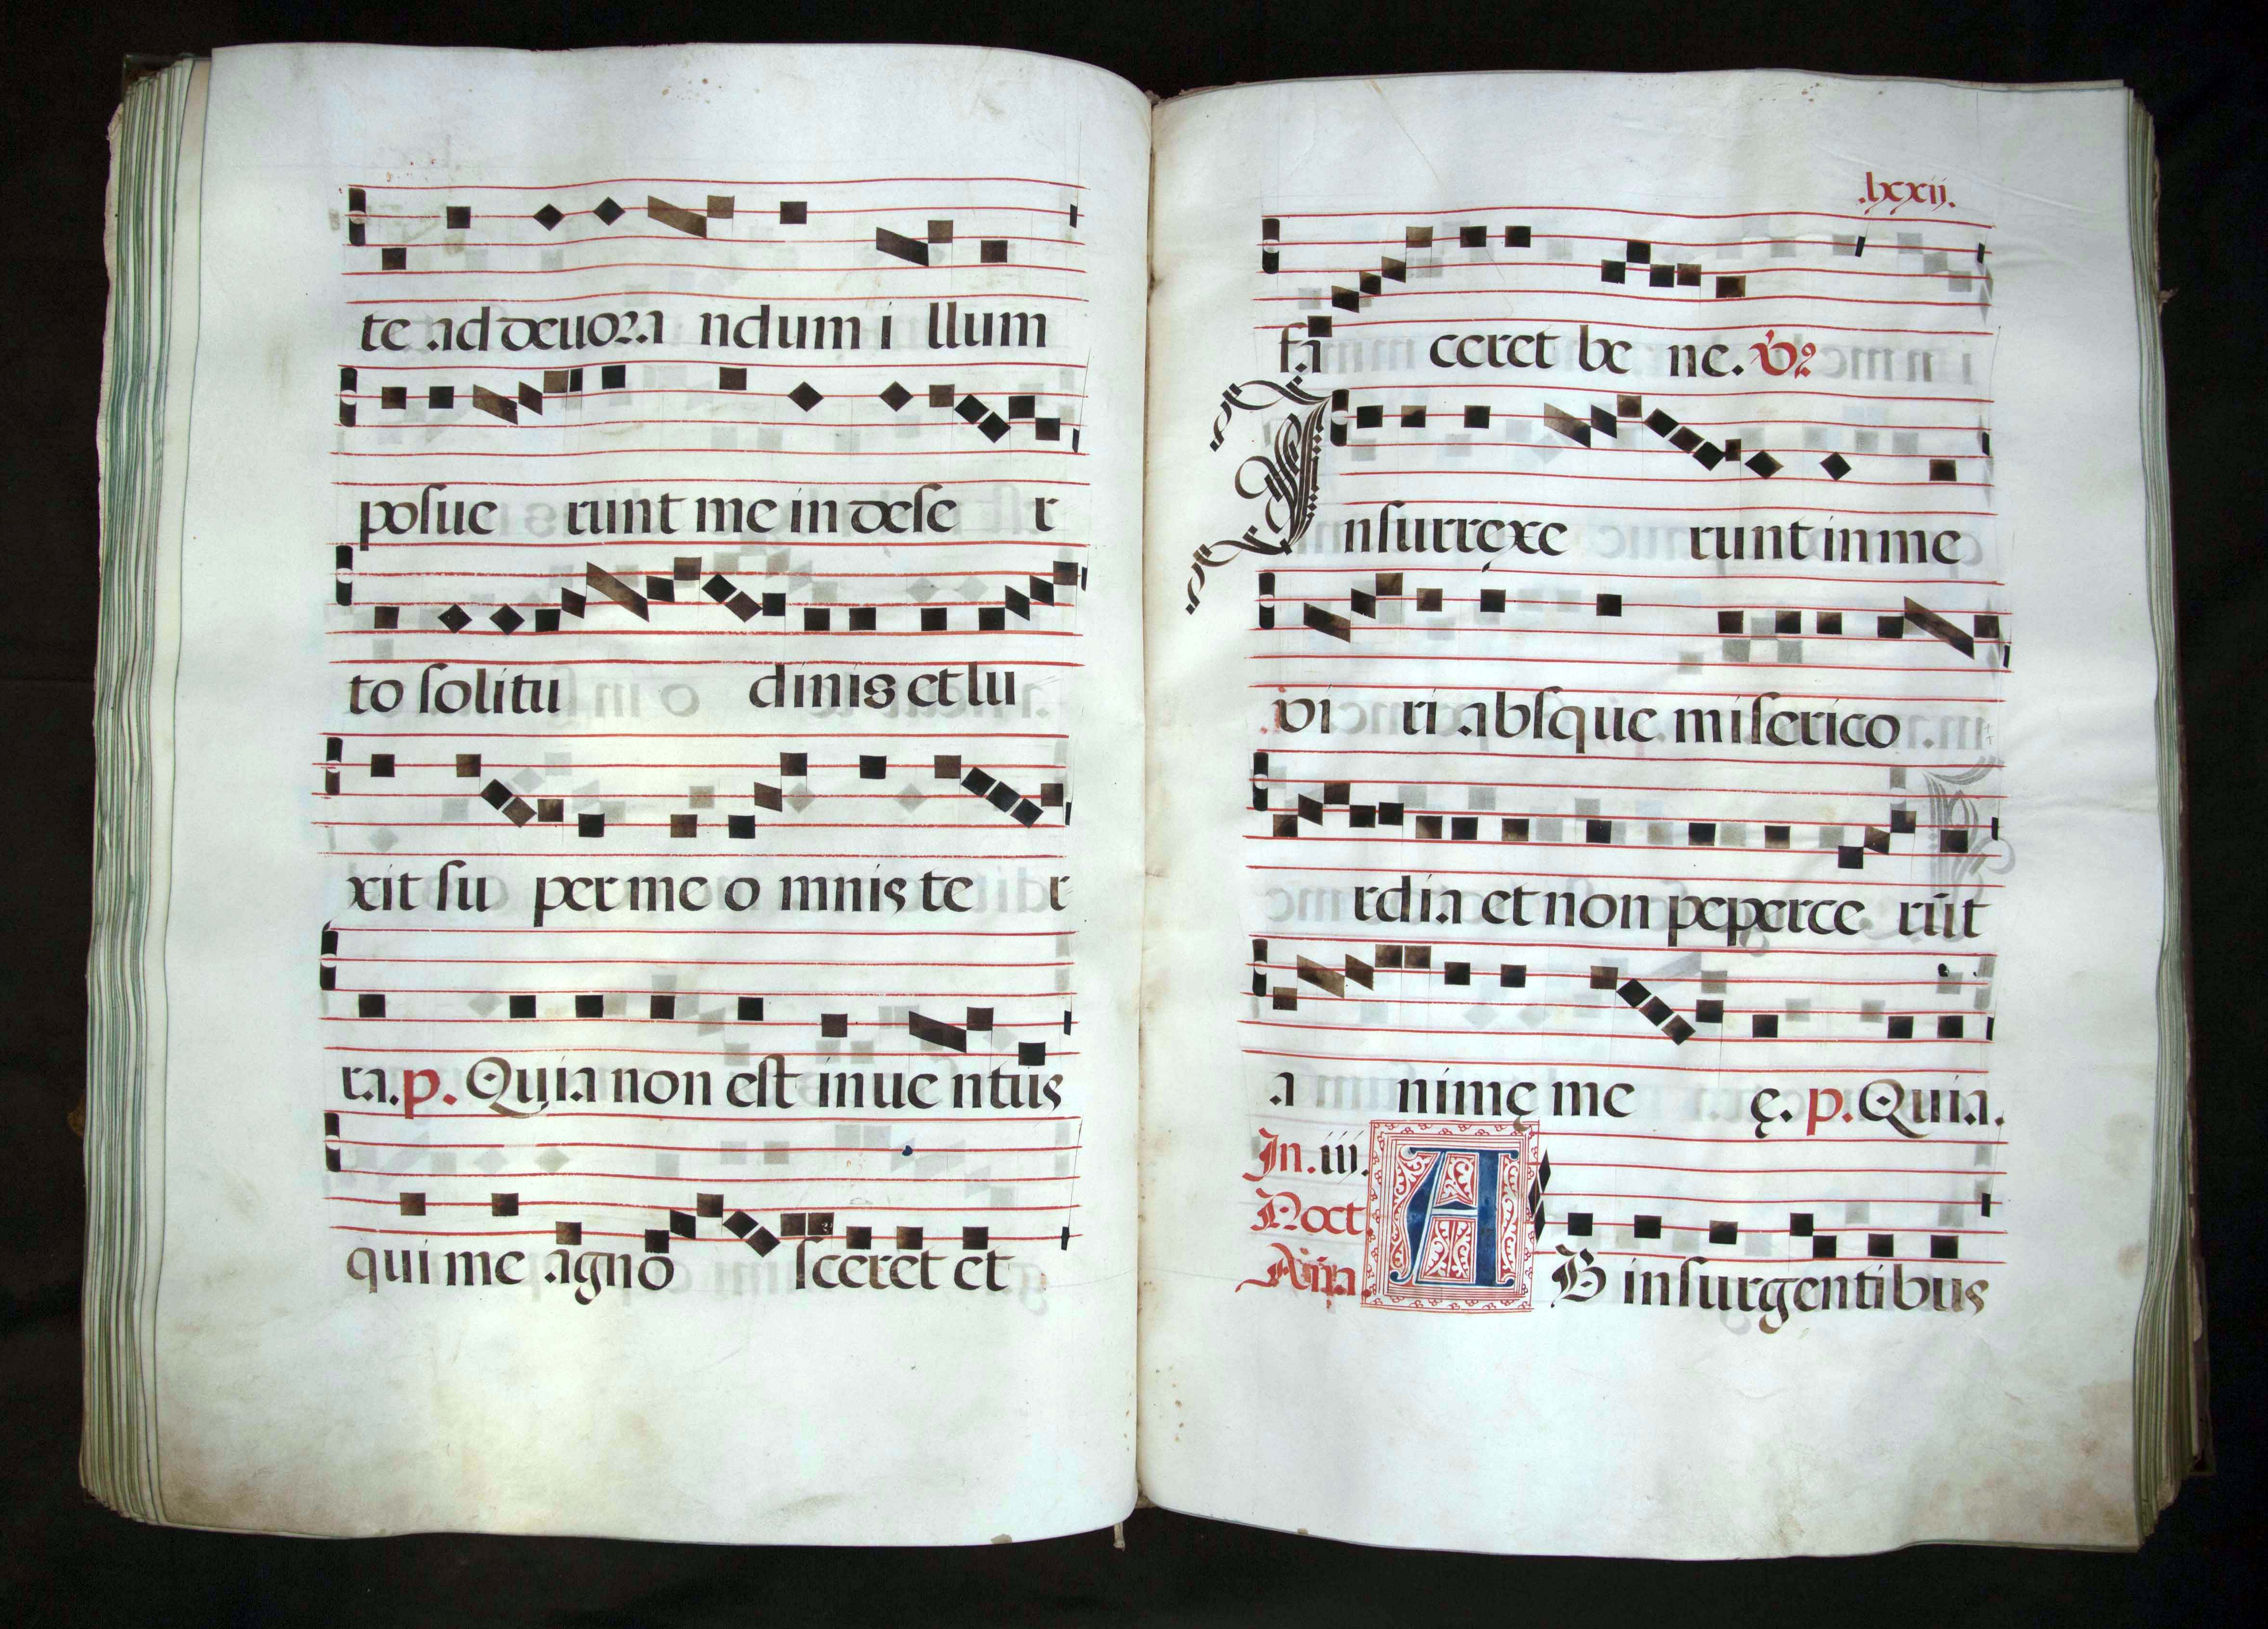 te ad deuora ndum i llum
posue runt me in dese r
to solitu dinis et lu
xit su per me o mnis te r
ra. p. Quia non est inue ntus
qui me agno sceret et
.lxxii.
fa ceret be ne. V
Insurrexe runt in me
vi ri absque miserico
rdia et non peperce rūt
a nimę me ę. p. Quia.
In. iii.
Noct.
Aña.
AB insurgentibus